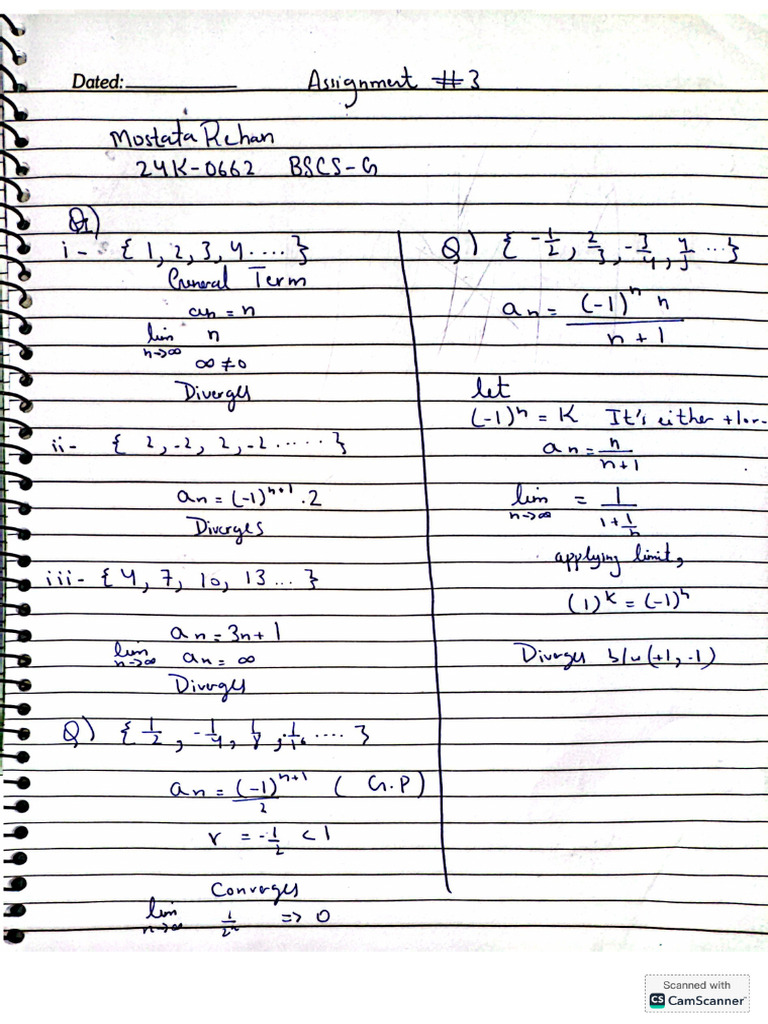 Dated:
Assignment #3
Mostafa Rehan
24K-0662 BSCS-G
Q1)
i- {1, 2, 3, 4 ....}
General Term
an = n
lim n→∞ n
∞ ≠ 0
Diverges
ii- { 2, -2, 2, -2 ..... }
an = (-1)^n+1 . 2
Diverges
iii- {4, 7, 10, 13 ... }
an = 3n+1
lim n→∞ an = ∞
Diverges
Q) {1/2, -1/4, 1/8, 1/16 .... }
an = (-1)^n+1 / 2 ( G.P)
r = -1/2 < 1
Converges
lim n→∞ 1/2^n => 0
Q) { -1/2, 2/3, -3/4, 4/5 ... }
an = (-1)^n n / n+1
let
(-1)^n = K It's either +1 or -
an = n / n+1
lim n→∞ = 1 / 1+1/n
applying limit,
(1)K = (-1)^n
Diverges b/w (+1, -1)
Scanned with
CS CamScanner